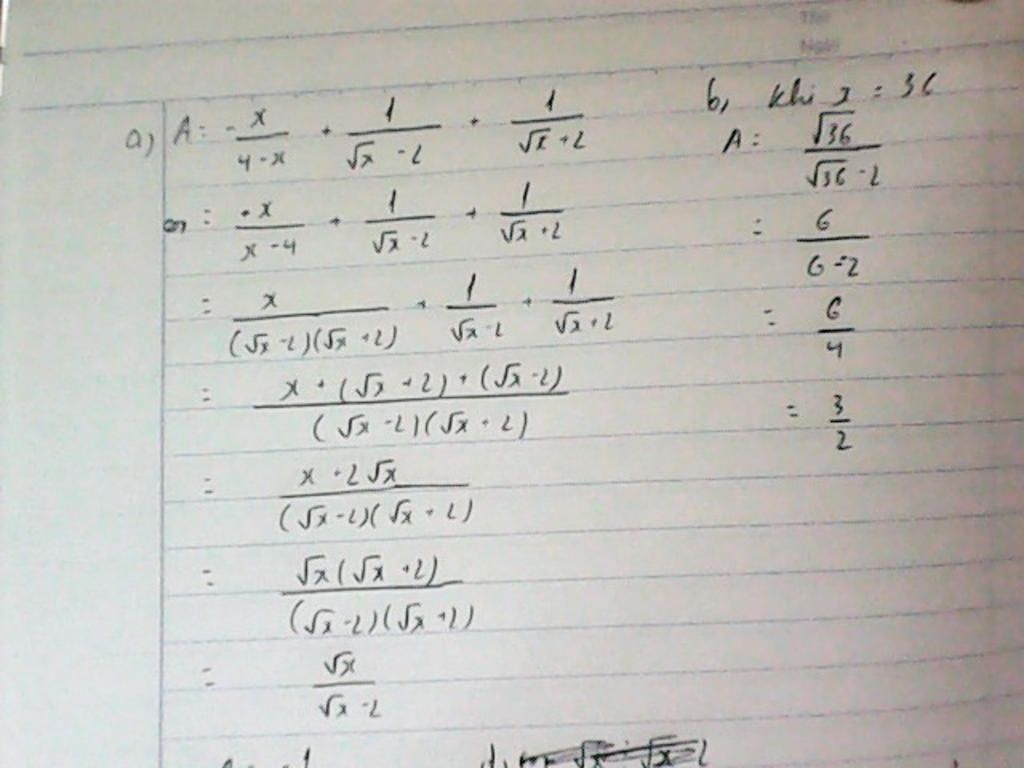 Thứ
Ngày
a) A = - x/(4 - x) + 1/(√x - 2) + 1/(√x + 2)
= x/(x - 4) + 1/(√x - 2) + 1/(√x + 2)
= x/((√x - 2)(√x + 2)) + 1/(√x - 2) + 1/(√x + 2)
= (x + (√x + 2) + (√x - 2))/((√x - 2)(√x + 2))
= (x + 2√x)/((√x - 2)(√x + 2))
= (√x(√x + 2))/((√x - 2)(√x + 2))
= √x/(√x - 2)
b, khi x = 36
A = √36/(√36 - 2)
= 6/(6 - 2)
= 6/4
= 3/2